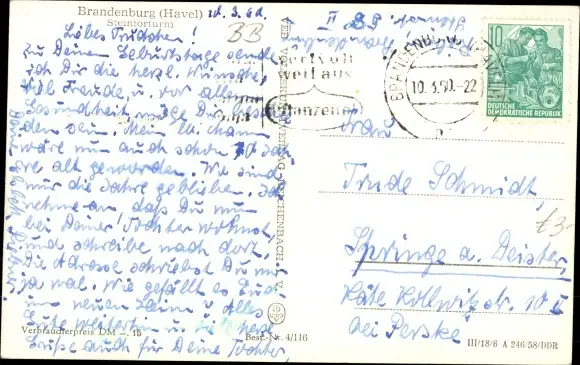 Brandenburg (Havel) 10. 3. 60.
Steintorturm
Liebes Trudchen!
Zu Deinem Geburtstage sende
ich Dir die herzl. Wünsche,
viel Freude, u. vor allem
Gesundheit möge Dir
den sein. Mein
wäre nun auch schon 70 Jah
re alt geworden. Wo sind
nur die Jahre geblieben. Ich
nehme an, daß Du nun
bei Deiner Tochter wohnst,
und schreibe nach dort,
die Adresse schriebst Du mir
ja mal. Wie gefällt es Euch
im neuen Heim? Alles
Gute weiterhin u. herzl.
Grüße auch für Deine Tochter,
Verbraucherpreis DM –.15
Best.-Nr. 4/116
VEB VOLKSKUNSTVERLAG REICHENBACH I. V.
BB
wertvoll
weil aus
Pflanzenöl
BRANDENBURG (HAVEL)
10.3.60.-22
10
DEUTSCHE
DEMOKRATISCHE REPUBLIK
Frau
Trude Schmidt,
Springe a. Deister,
Käte Kollwitz str. 10
bei Perske
£3-
III/18/6 A 246/58/DDR